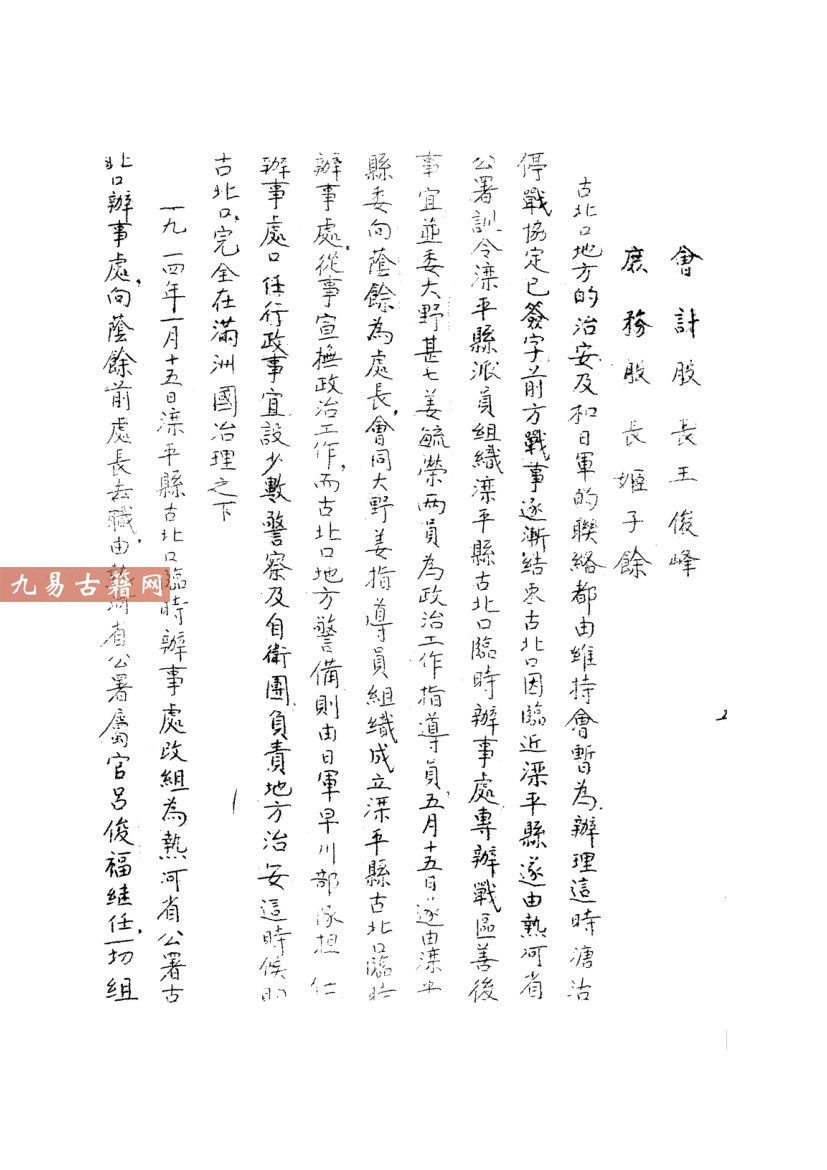 會計股長王俊峰
庶務股長姬子餘
古北口地方的治安及和日軍的聯絡都由維持會暫為辦理這時溏沽
停戰協定已簽字前方戰事逐漸結束古北口因臨近滦平縣遂由熱河省
公署訓令滦平縣派員組織滦平縣古北口臨時辦事處專辦戰區善後
事宜並委大野甚七姜毓榮两員為政治工作指導員,五月十五日遂由滦平
縣委向蔭餘為處長,會同大野姜指導員組織成立滦平縣古北口臨時
辦事處,從事宣撫政治工作,而古北口地方警備則由日軍早川部隊担任
辦事處口任行政事宜設少數警察及自衛團負責地方治安這時候的
古北口,完全在滿洲國治理之下
一九一四年一月十五日滦平縣古北口臨時辦事處改組為熱河省公署古
北口辦事處,向蔭餘前處長去職,由熱河省公署屬官呂俊福継任,一切組
九易古籍网